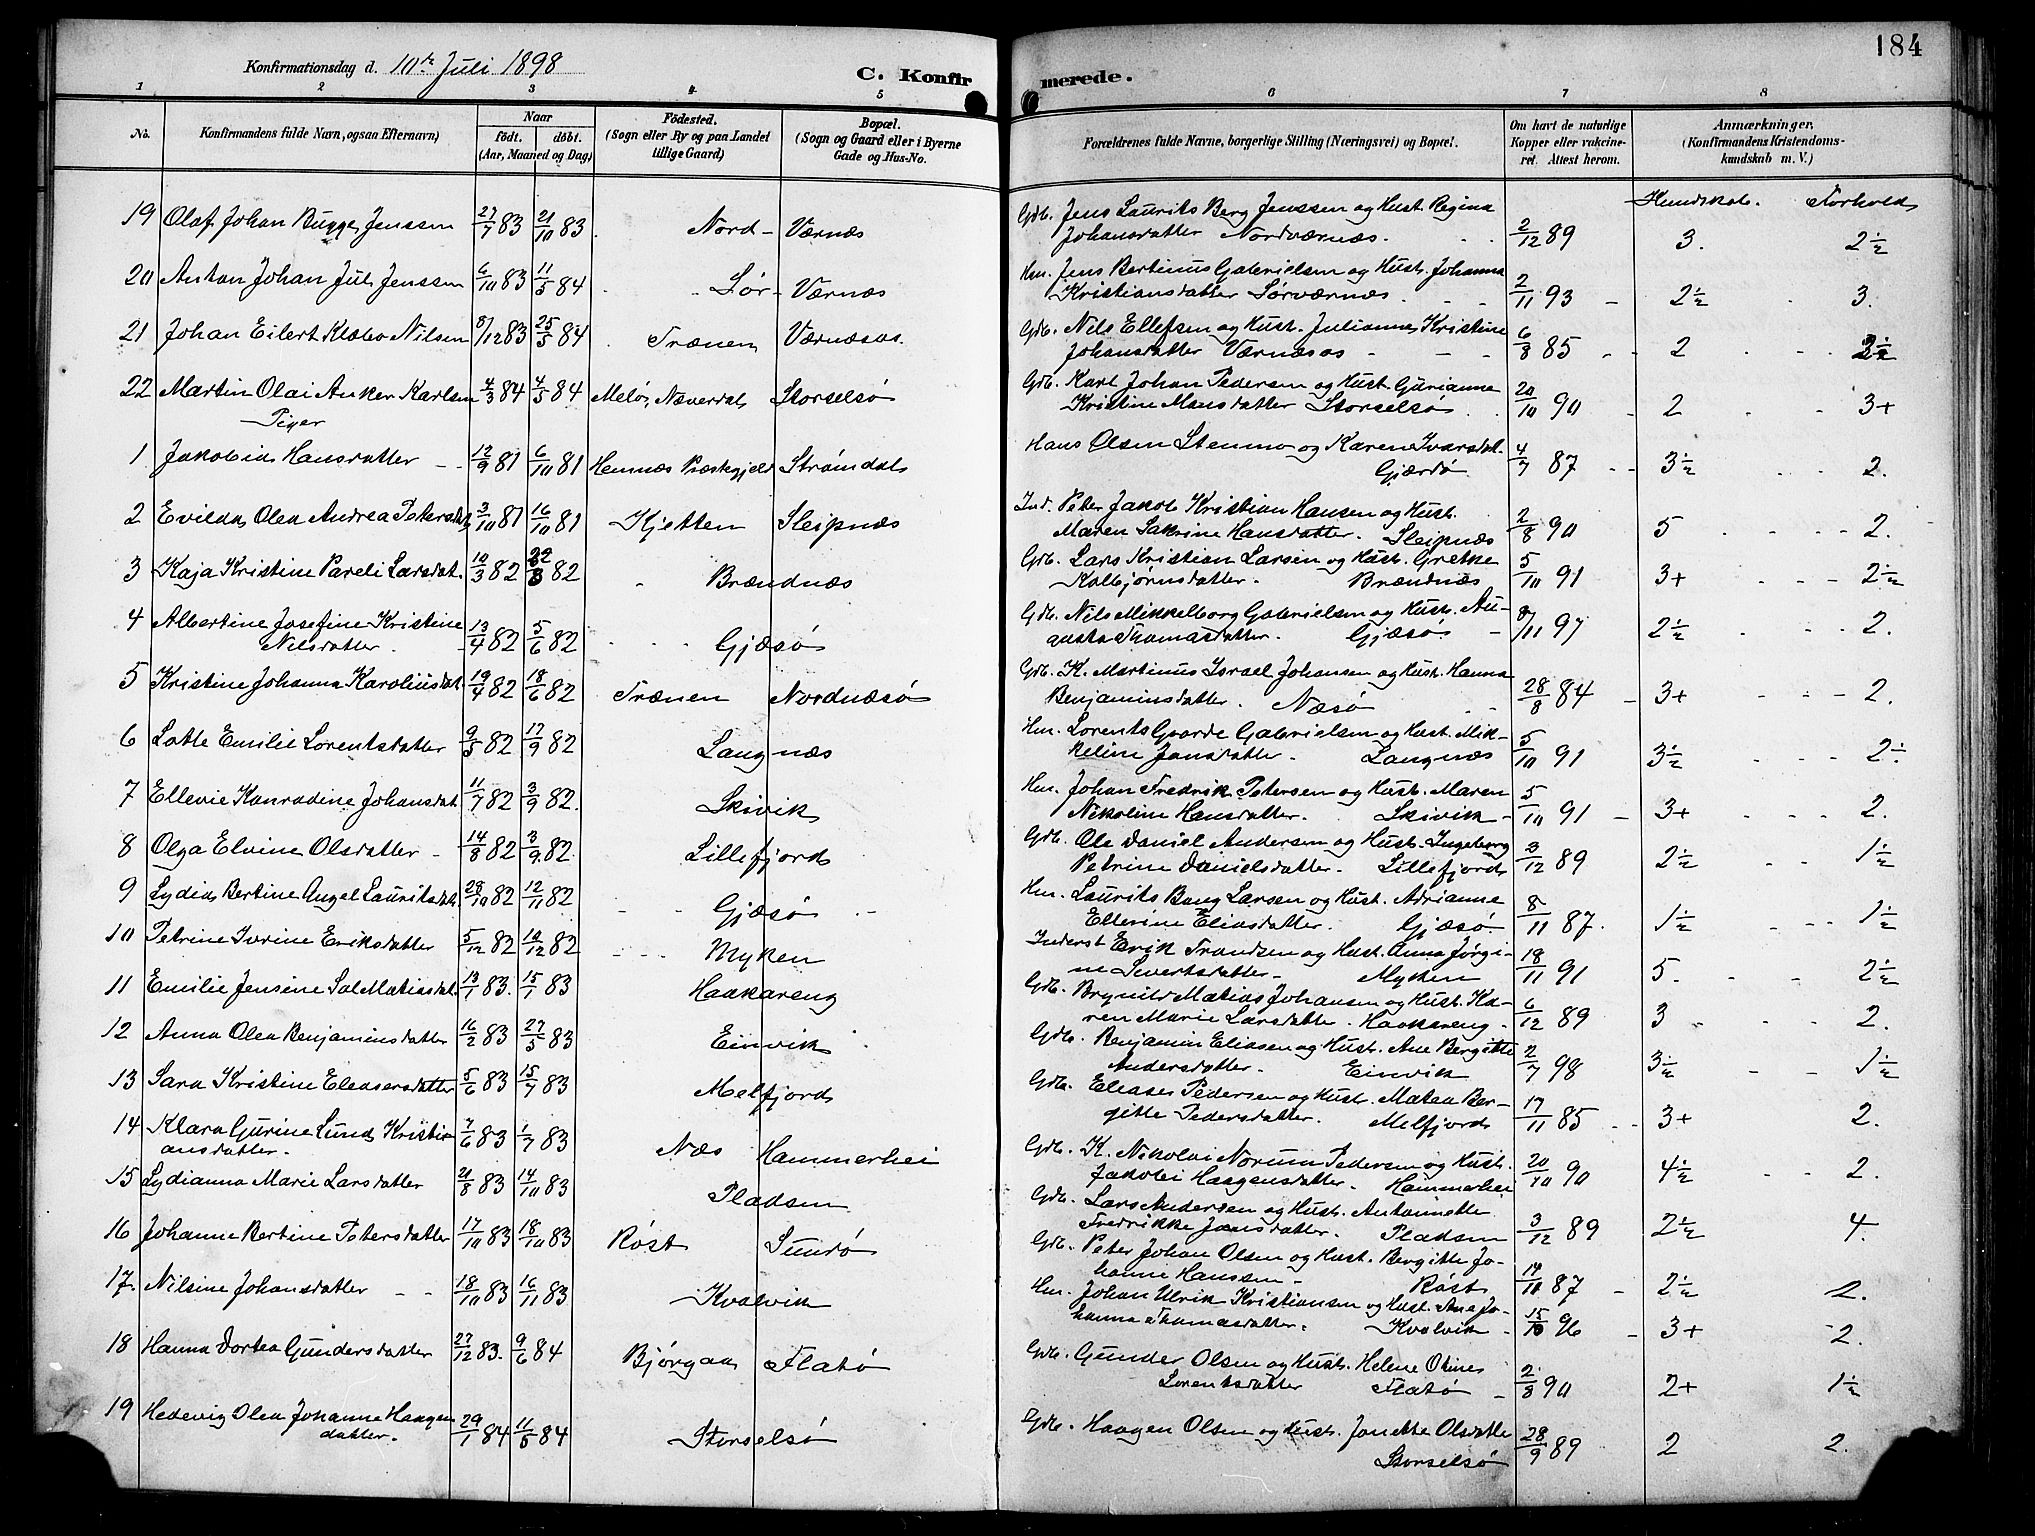 184
Konfirmationsdag d. 10de Juli 1898
C. Konfirmerede.
1 2 3 4 5 6 7 8
No. Konfirmandens fulde Navn, ogsaa Efternavn) Naar født. døbt. (Aar, Maaned og Dag) Fødested. (Sogn eller By og paa Landet tillige Gaard) Bopæl. (Sogn og Gaard eller i Byerne Gade og Hus-No. Forældrenes fulde Navne, borgerlige Stilling (Næringsvei) og Bopæl. Om havt de naturlige Kopper eller vakcineret. Attest herom. Anmærkninger, (Konfirmandens Kristendomskundskab m. V.)
Kundskab. Forhold
19 Olaf Johan Bugge Jenssen 27/7 83 21/10 83 Nord- Værnæs Gdb. Jens Laurits Berg Jenssen og Hust. Regina
Johansdatter Nordværnæs. 2/12 89 3. 2 1/2
20 Anton Johan Jul Jenssen 6/10 83 11/5 84 Sør- Værnæs Hm. Jens Bertinus Gabrielsen og Hust. Johanna
Kristiansdatter Sørværnæs 2/11 93 2 1/2 3.
21 Johan Eilert Klæbo Nilsen 8/12 83 25/5 84 Trænen Værnæsos. Gdb. Nils Ellefsen og Hust. Julianna Kristine
Johansdatter Værnæsos 6/8 85 2
22 Martin Olai Anker Karlsen 4/3 84 4/5 84 Melø, Næverdal Storselsø Gdb. Karl Johan Pedersen og Hust. Gurianna
Kristine Mansdatter Storselsø 20/10 90 2 3+
Piger
1 Jakobia Hansdatter 12/9 81 6/10 81 Hemnæs Præstegjeld Strømdal Hans Olsen Stenmo og Karen Ivarsdat.
Gjærdø 4/7 87 3 1/2 2.
2 Evilda Olea Andrea Petersdat. 3/10 81 16/10 81 Kjetten Sleipnæs Ind. Peter Jakob Kristian Hansen og Hust.
Maren Sakrine Hansdatter. Sleipnæs 2/8 90 5 2.
3 Kaja Kristine Pareli Larsdat. 10/3 82 82 Brændnæs Gdb. Lars Kristian Larsen og Hust. Grethe
Kolbjørnsdatter. Brændnæs 5/10 91 3+ 2 1/2
4 Albertine Josefine Kristine
Nilsdatter. 13/4 82 5/6 82 Gjæsø Gdb. Nils Mikkelborg Gabrielsen og Hust. Au-
gusta Thomasdatter. Gjæsø 8/11 97 2 1/2 2.
5 Kristine Johanna Karoliusdat. 19/4 82 18/6 82 Trænen Nordnæsø Gdb. K. Martinus Israel Johansen og Hust. Hanna
Benjaminsdatter. Næsø 28/8 84 3+ 2.
6 Lotte Emilie Lorentsdatter 9/5 82 17/9 82 Langnæs Hm. Lorents Gaarde Gabrielsen og Hust. Mik-
keline Jansdatter. Langnæs 5/10 91 3 1/2 2 1/2
7 Ellevie Konradine Johansdat. 11/7 82 3/9 82. Skivik Hm. Johan Fredrik Petersen og Hust. Maren
Nikoline Hansdatter. Skivik 5/10 91 3+ 2.
8 Olga Elvine Olsdatter 14/8 82 3/9 82. Lillefjord Gdb. Ole Daniel Andersen og Hust. Ingeborg
Petrine Danielsdatter. Lillefjord 3/12 89 2 1/2 1 1/2
9 Lydia Bertine Angel Lauritsdat. 28/10 82 12/11 82 Gjæsø Hm. Laurits Bang Larsen og Hust. Adrianne
Elterine Eliasdatter. Gjæsø. 8/11 87. 1 1/2 1 1/2
10 Petrine Ivrine Eriksdatter 5/12 82 10/12 82 Myken Inderst Erik Trondsen og Hust. Anna Jørgi-
ne Sivertsdatter Myken 18/11 91 5. 2 1/2
11 Emilie Jensine Sol Matiasdat. 13/1 83. 15/1 83 Haakareng Gdb. Brynild Matias Johansen og Hust. Ka-
ren Marie Larsdatter. Haakareng. 6/12 89 3 2.
12 Anna Olea Benjaminsdatter 16/2 83 27/5 83 Einvik Gdb. Benjamin Eliasen og Hust. Ane Bergitte
Andersdatter. Einvik 2/7 98 3 1/2 1 1/2
13 Sara Kristine Eleasersdatter 5/6 83 15/7 83 Melfjord Gdb. Eleaser Pedersen og Hust. Matea Ber-
gitte Pedersdatter. Melfjord 17/11 85 3+ 2.
14 Klara Gurine Lund Kristi-
ansdatter. 7/6 83 1/7 83 Næs Hammerhei Gdb. K. Nikolai Norum Pedersen og Hust.
Jakobi Haagensdatter. Hammerhei 20/10 90 4 1/2 2.
15 Lydianna Marie Larsdatter 21/8 83 14/10 83 Pladsen Gdb. Lars Andersen og Hust. Antonette
Fredrikke Jansdatter. Pladsen 3/12 89 2 1/2 4.
16 Johanne Bertine Petersdatter 17/10 83 18/10 83 Røst Sundø Gdb. Peter Johan Olsen og Hust. Bergitte Jo-
hanne Hanssen Røst 14/11 87 2 1/2 2.
17. Nilsine Johansdatter 18/10 83 16/11 83 Kvalvik Hm. Johan Ulrik Kristiansen og Hust. Ane Jo-
hanna Thomasdatter. Kvalvik 96 3+ 2.
18 Hanna Dortea Gundersdatter 27/12 83. 9/6 84 Bjørgaa Flatø Gdb. Gunder Olsen og Hust. Helene Oline
Lorentsdatter Flatø 2/8 90 2+ 1 1/2
19 Hedevig Olea Johanne Haagen-
datter. 29/1 84 11/5 84 Storselsø Gdb. Haagen Olsen og Hust. Janette Olsdatter
Storselsø 28/9 89 2 2.